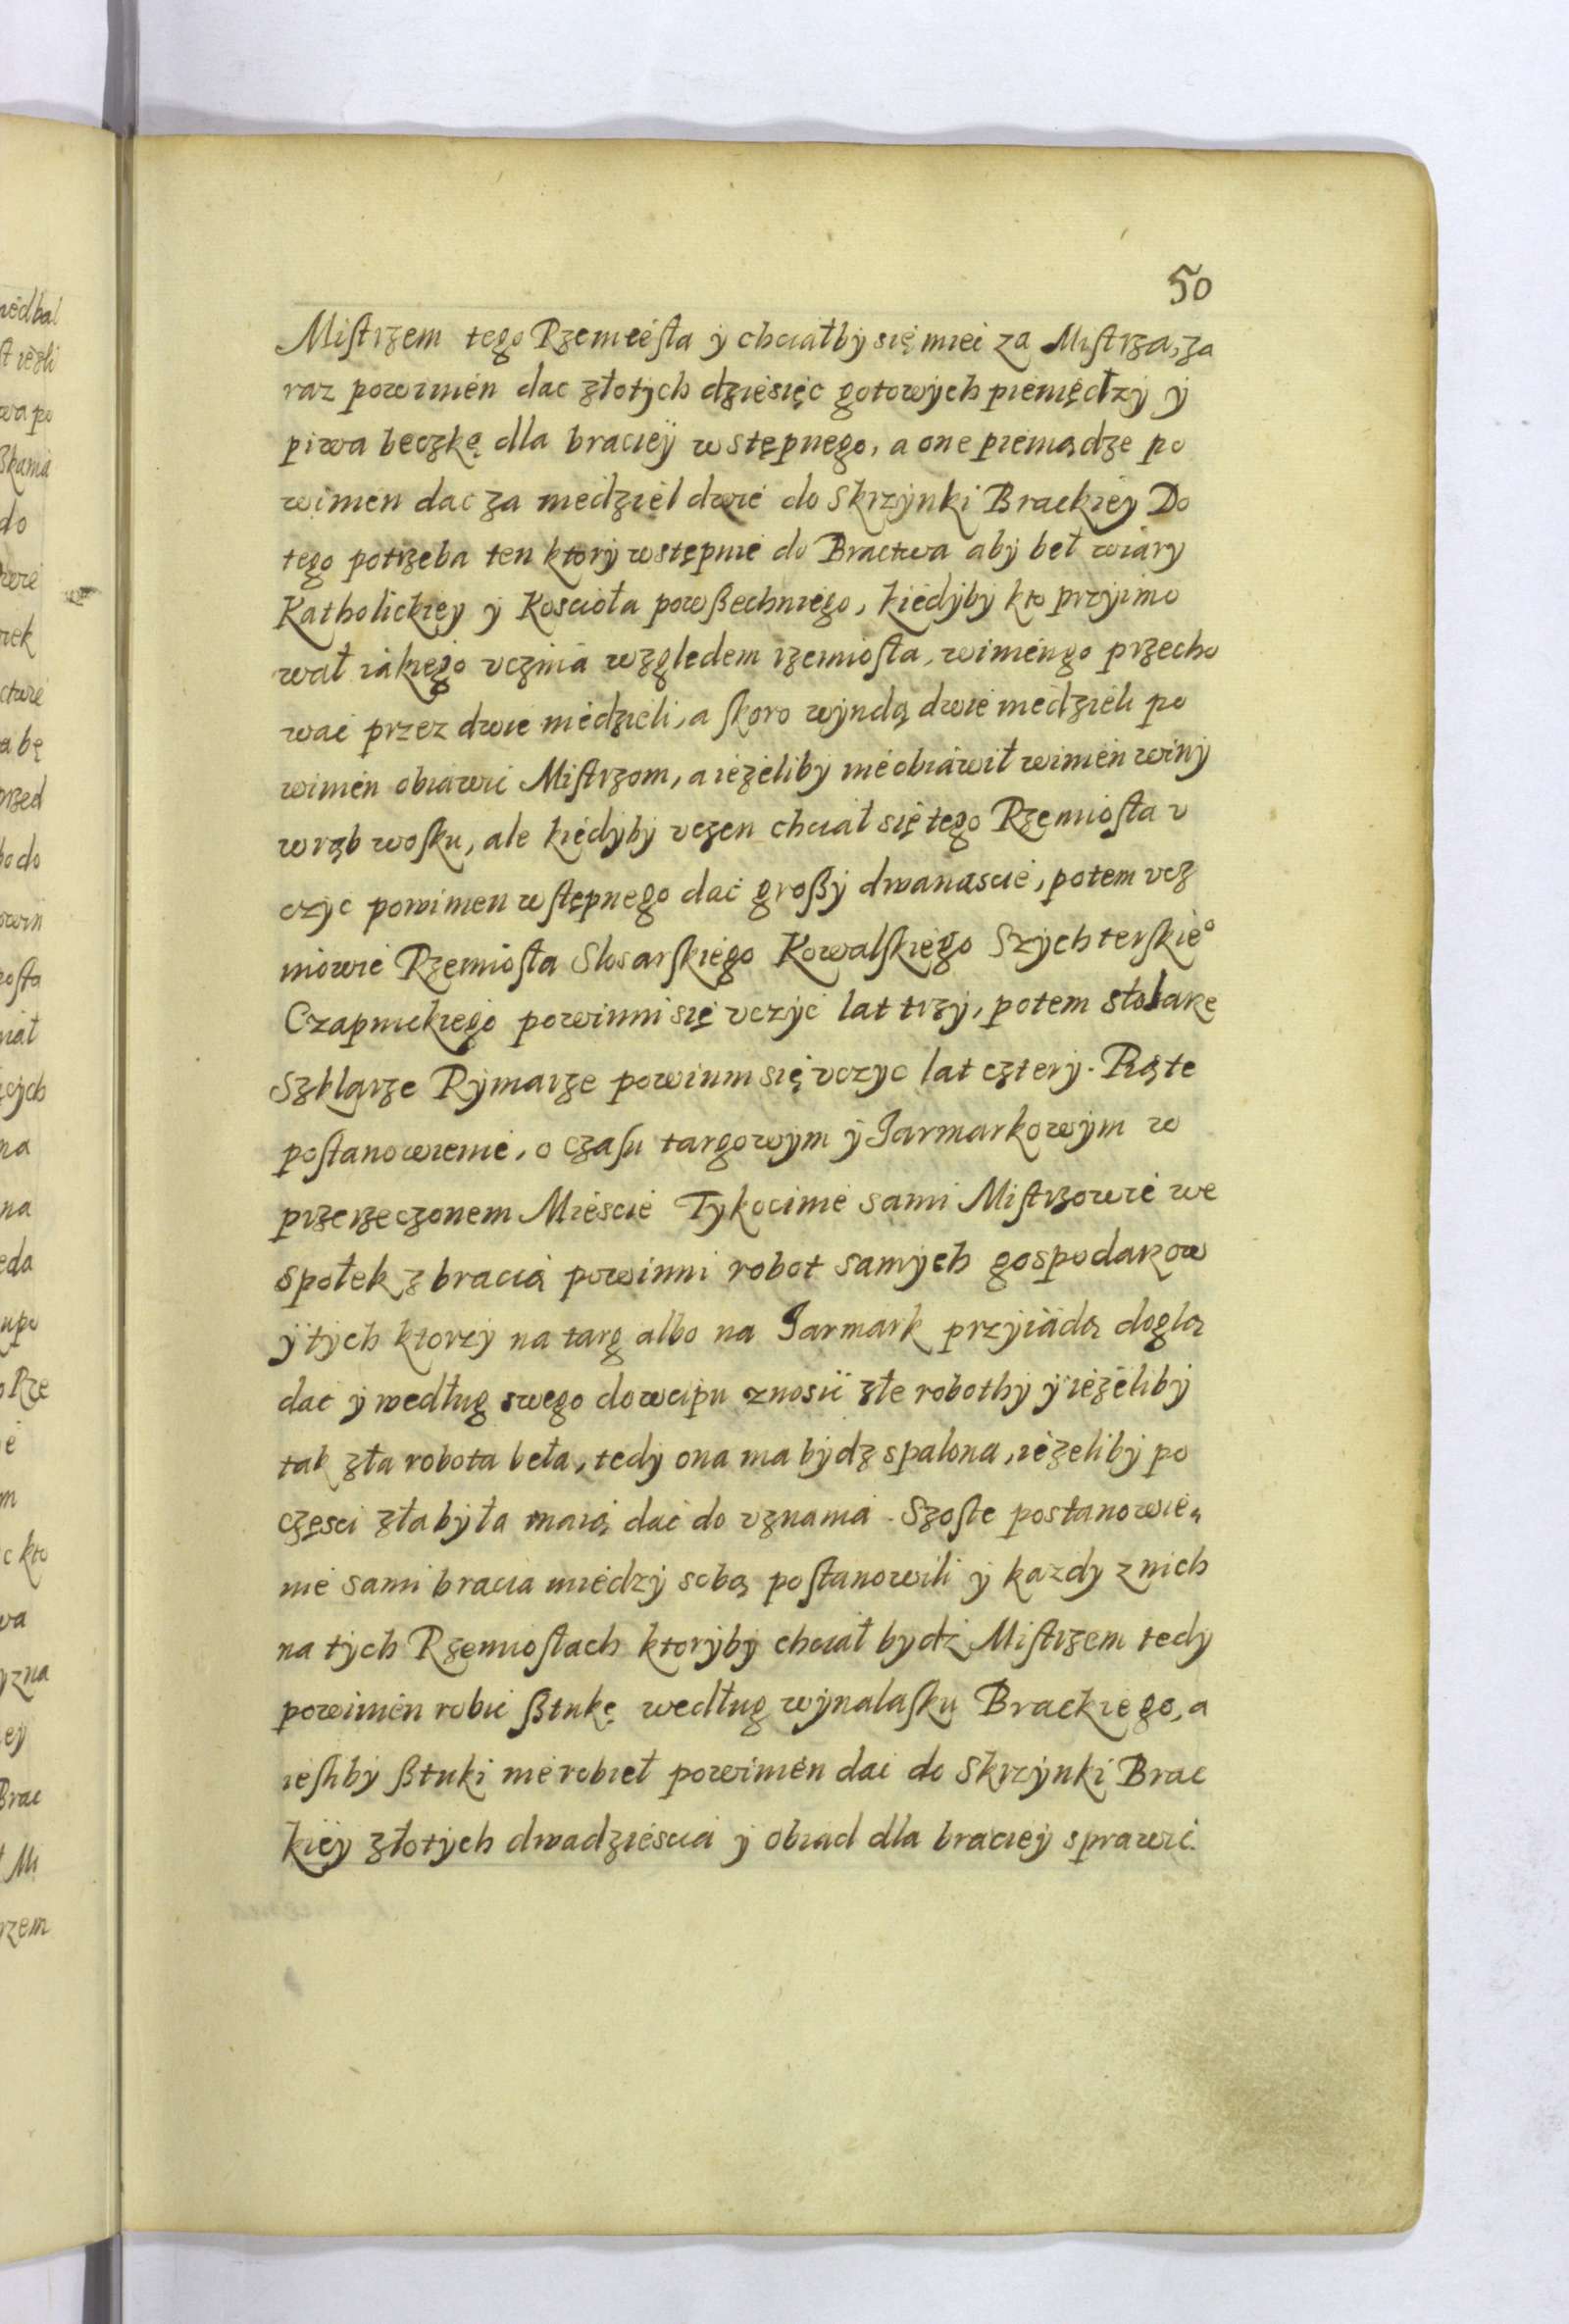 50
Mistrzem tego Rzemiesła ÿ chciałbÿ się miec za Mistrza, za
raz powinien dac złotÿch dziesięc gotowÿch pieniędzÿ ÿ
piwa beczkę dla bracieÿ wstępnego, a one pieniądze po
winien dac za niedziel dwie do Skrzÿnki Brackieÿ Do
tego potrzeba ten ktorÿ wstępuie do Bractwa abÿ beł wiary
Katholickieÿ ÿ Koscioła powßechniego, kiedÿbÿ kto przÿimo
wał iakiego vcznia względem rzemiosła, winien go przecho
wac przez dwie niedzieli, a skoro wÿndą dwie niedzieli po
winien obiawic Mistrzom, a ieżeliby nieobiawił winien winÿ
wrąb wosku, ale kiedÿbÿ vczen chciał się tego Rzemiosła v
czyc powinien wstępnego dac großÿ dwanascie, potem vcz
niowie Rzemiosła Slosarskiego Kowalskiego Szÿchterskieo
Czapnickiego powinni się vczÿc lat trzÿ, potem stolarze
Szklarze Rÿmarze powinni się vczyc lat cztery. Piąte
postanowienie, o czasu targowÿm ÿ Jarmarkowÿm w
przerzeczonem Miescie Tykocinie sami Mistrzowie we
społek z bracią powinni robot samÿch gospodarzow
ÿ tÿch ktorzÿ na targ albo na Jarmark przÿiadą doglą
dac ÿ według swego dowcipu znosic złe robothÿ ÿ ieżelibÿ
tak zła robota beła, tedÿ ona ma bÿdz spalona, ieżelibÿ po
częsci zła bÿła maią dac do vznania. Szoste postanowie„
nie sami bracia miedzÿ sobą postanowili ÿ kazdy z nich
na tÿch Rzemiosłach ktorÿbÿ chciał bydź Mistrzem tedy
powinien robic ßtukę według wÿnalasku Brackiego, a
iesliby ßtuki nie robieł powinien dac do Skrzÿnki Brac
kieÿ złotÿch dwadziescia ÿ obiad dla bracieÿ sprawic.